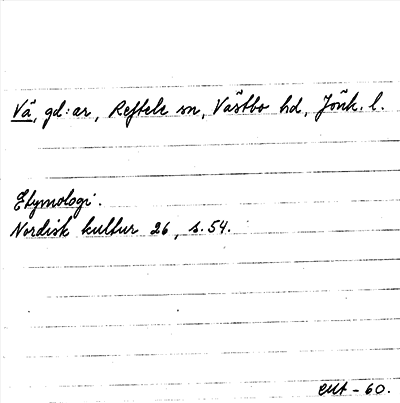 Vä, gd:ar, Reftele sn, Västbo hd, Jönk. l.
Etymologi.
Nordisk kultur 26, s. 54.
-60.